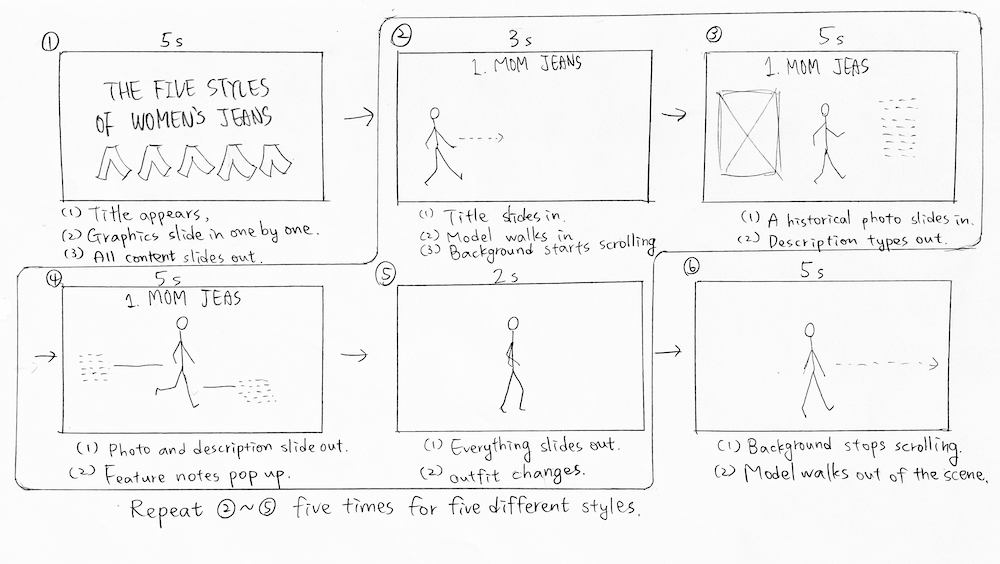 ① 5s
THE FIVE STYLES
OF WOMEN'S JEANS
(1) Title appears,
(2) Graphics slide in one by one.
(3) All content slides out.
② 3s
1. MOM JEANS
(1) Title slides in.
(2) Model walks in
(3) Background starts scrolling
③ 5s
1. MOM JEAS
(1) A historical photo slides in.
(2) Description types out.
④ 5s
1. MOM JEAS
(1) Photo and description slide out.
(2) Feature notes pop up.
⑤ 2s
(1) Everything slides out.
(2) outfit changes.
⑥ 5s
(1) Background stops scrolling.
(2) Model walks out of the scene.
Repeat ②~⑤ five times for five different styles.